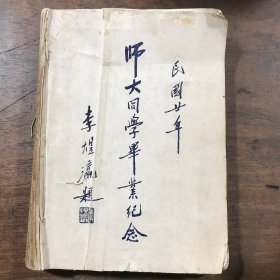 民國廿年
师大同學畢業紀念
李煜瀛題